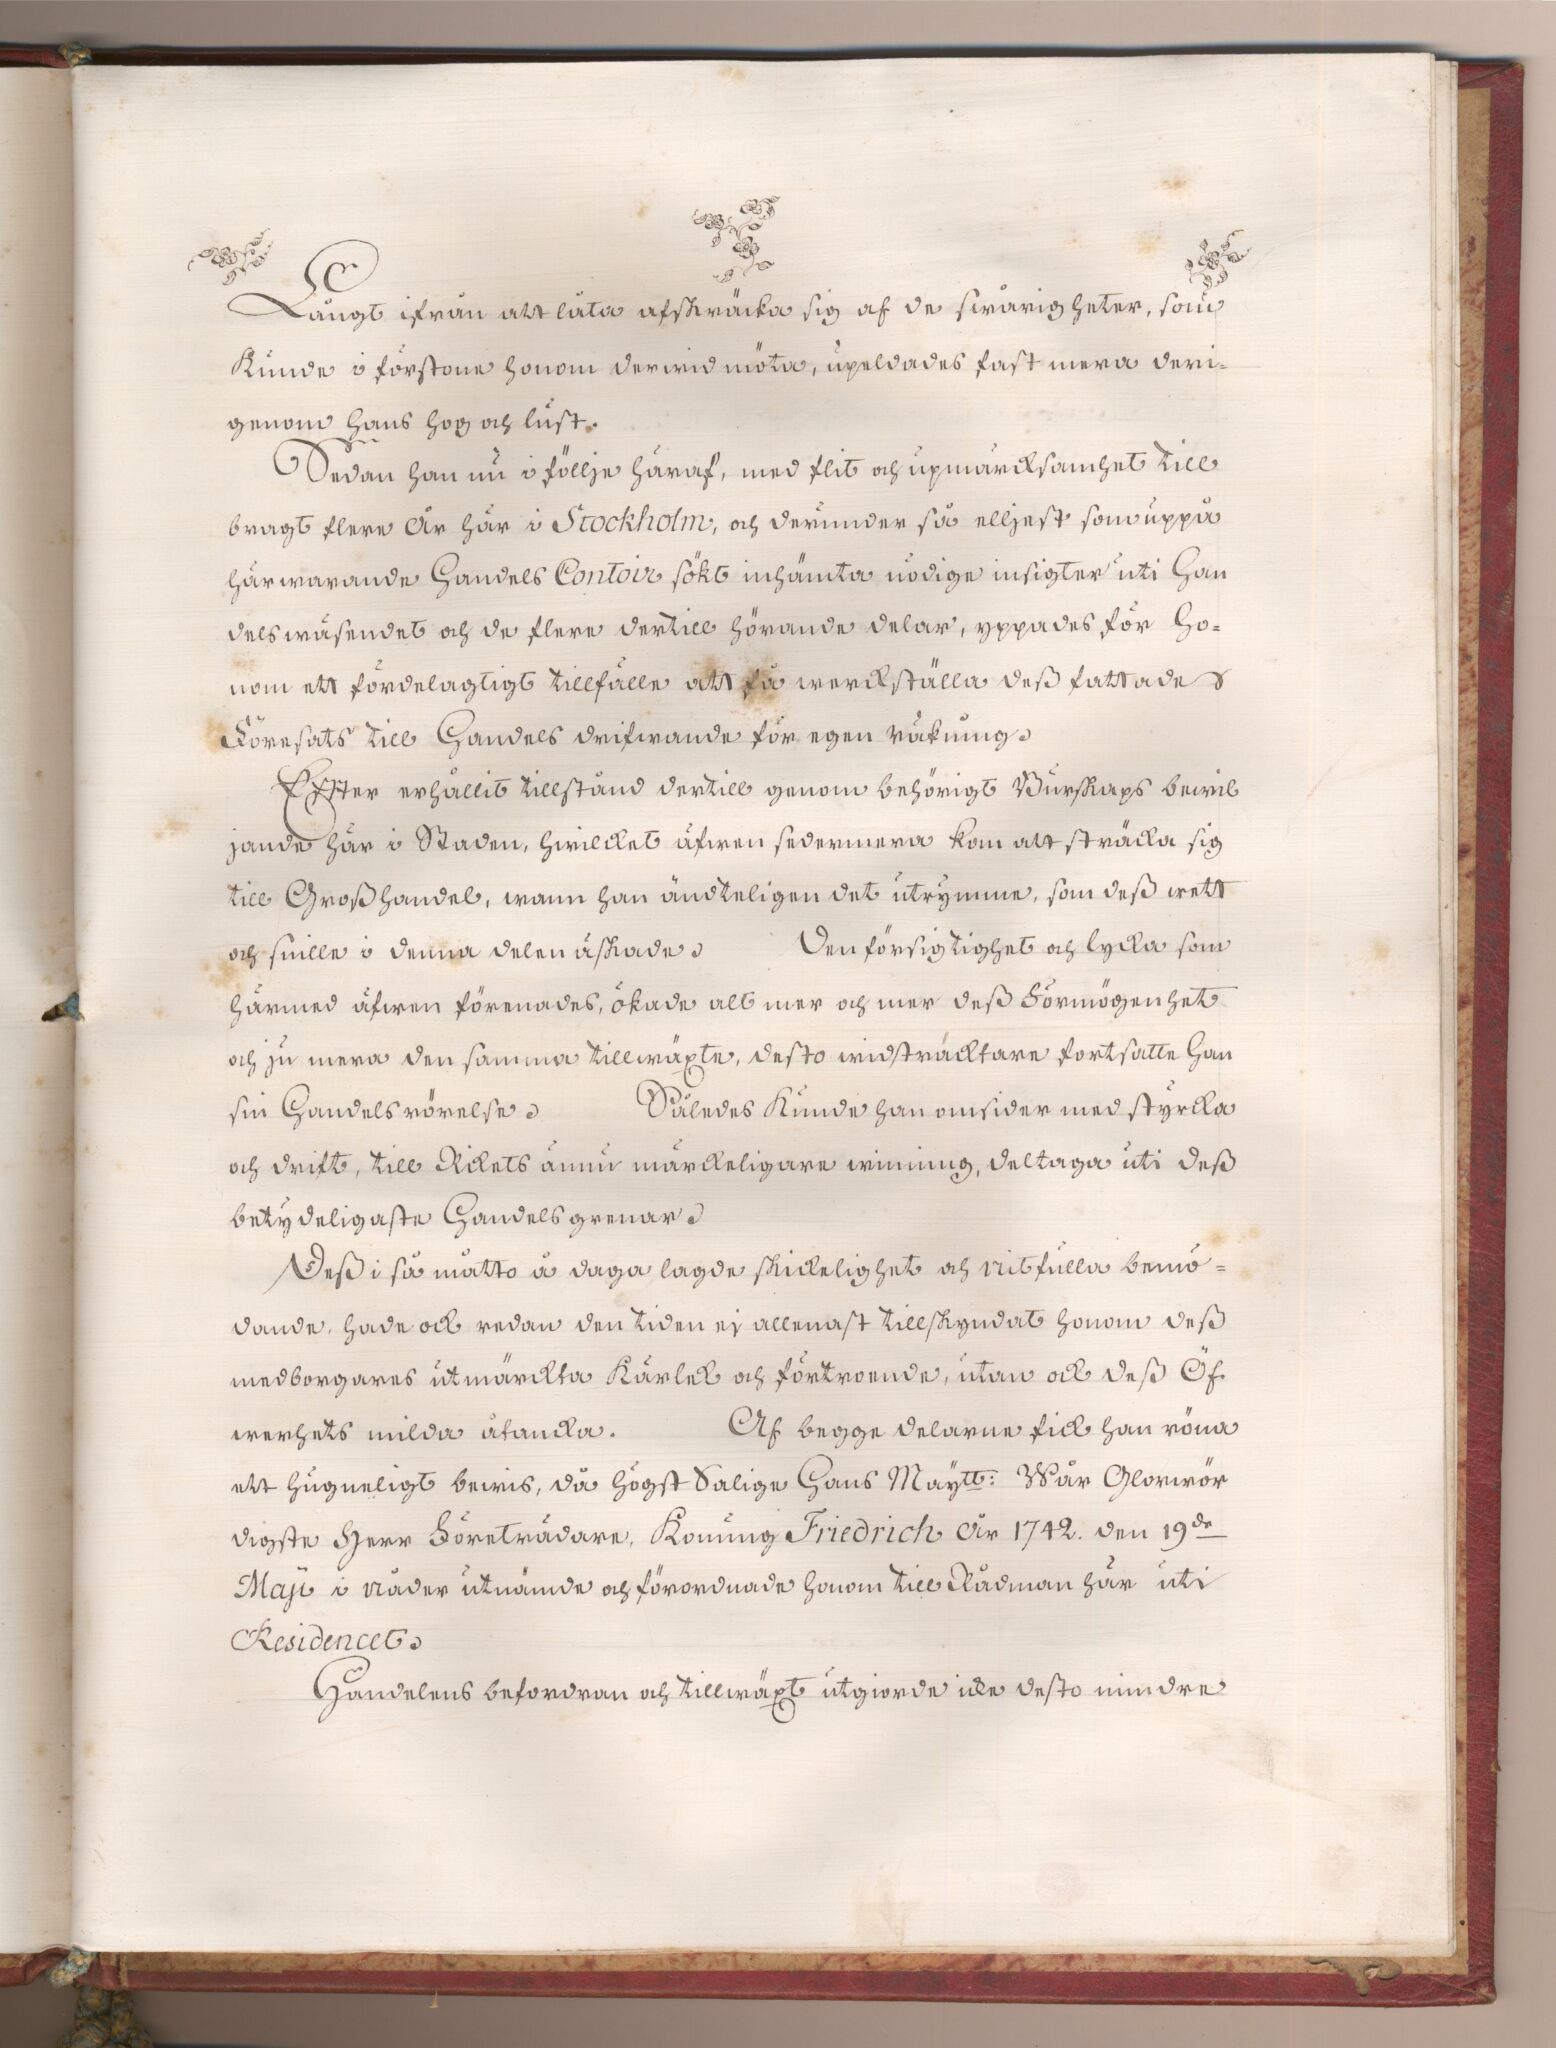 Långt ifrån att låta afskräcka sig af de swårigheter, som
Kunde i förstone honom derwid möta, upeldades fast mera deri-
genom Hans hog och lust.
Sedan han nu i föllje häraf, med flit och upmärcksamhet till
bragt flere År här i Stockholm, och derunder så elljest som uppå
härwarande Handels Contoir sökt inhämta nödige insigter uti Han
delswäsendet och de flere dertill hörande delar, yppades för Ho-
nom ett fördelagtigt tillfälle att få werckställa deß fattade
Föresats till Handels drifwande för egen räkning.
Efter erhållit tillstånd dertill genom behörigt Burskaps bewil
jande här i Staden, hwilcket äfwen sedermera kom att sträcka sig
till Großhandel, wann han ändteligen det utrymme, som deß wett
och snille i denna delen äskade. Den försigtighet och lycka som
härmed äfwen förenades, ökade alt mer och mer deß Förmögenhet
och ju mera den samma tillwäxte, desto widsträcktare fortsatte Han
sin Handels rörelse. Således Kunde han omsider med styrcka
och drift, till Rickets ännu märckeligare winning, deltaga uti deß
betydeligaste Handels grenar.
Deß i så måtto å daga lagde skickelighet och nitfulla bemö-
dande, hade ock redan den tiden ej allenast tillskyndat honom deß
medborgares utmärckta Kärlek och förtroende, utan ock deß Öf
werhets milda åtancka. Af begge delarne fick han röna
ett hugneligt bewis, då högst Salige Hans Maytt: Wår Glorwör
digste Herr Företrädare, Konung Friedrich År 1742. den 19de
Maji i nåder utnämde och förordnade honom till Rådman här uti
Residencet.
Handelens befordran och tillwäxt utgiorde icke desto mindre